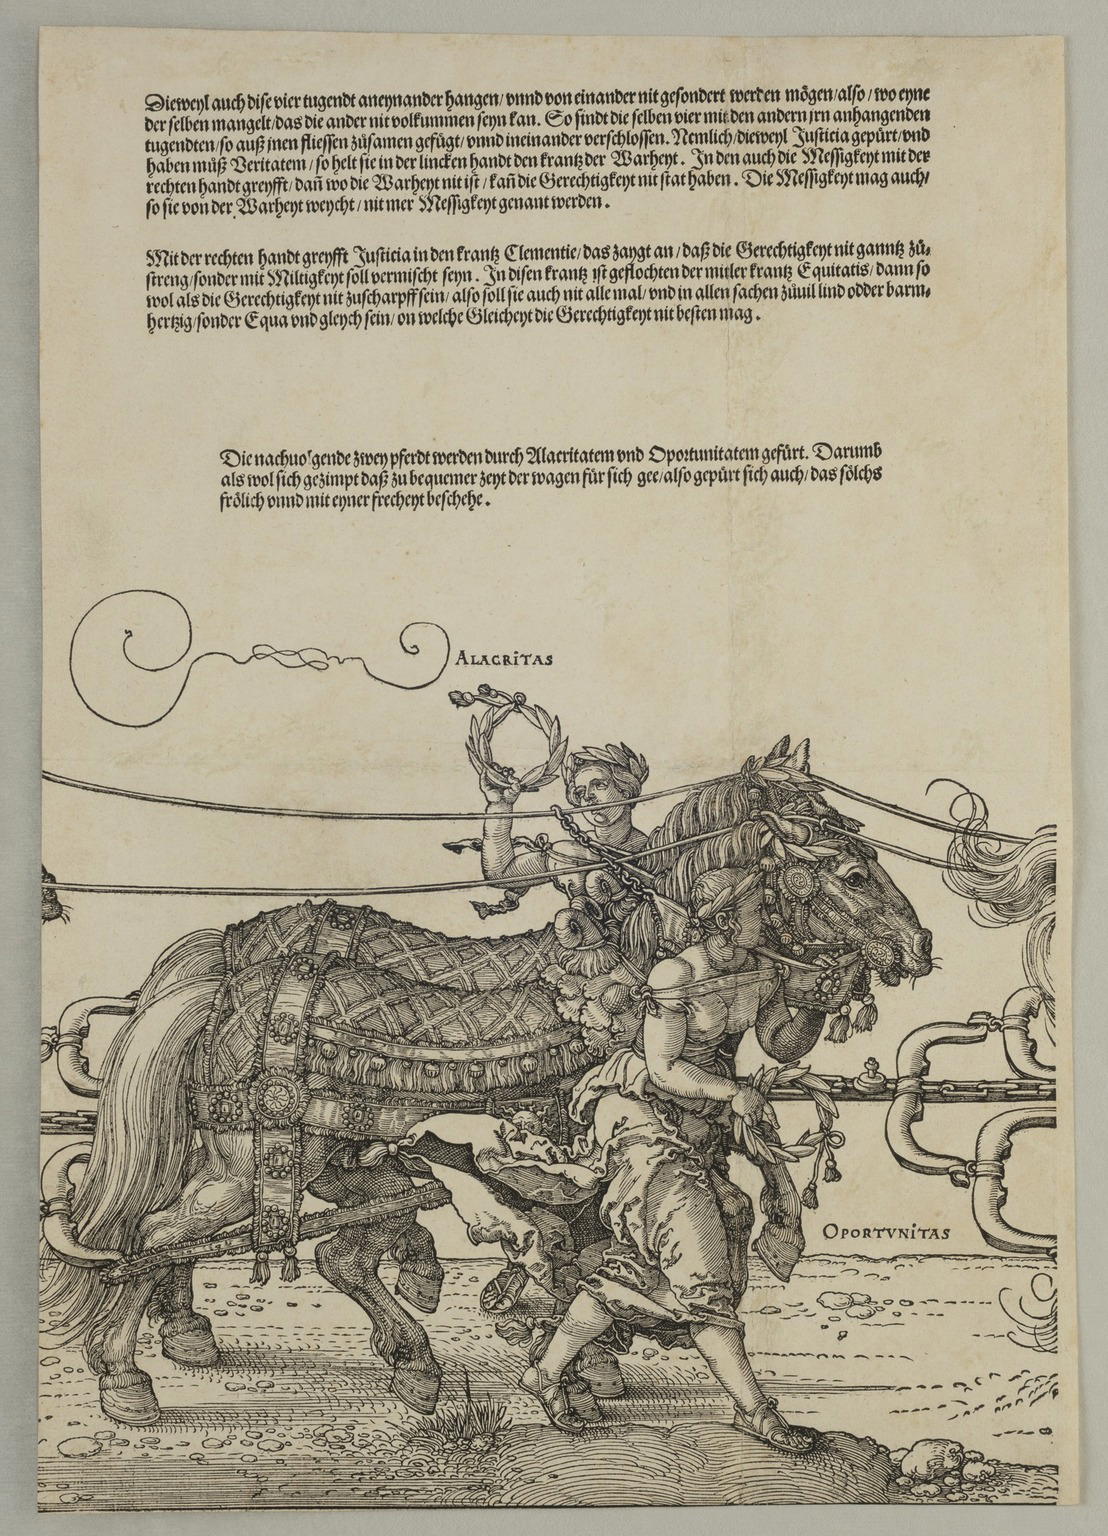 Dieweyl auch dise vier tugendt aneynander hangen/ vnnd von einander nit gesondert werden mögen/also/wo eyne
der selben mangelt/das die ander nit volkummen seyn kan. So sindt die selben vier mit den andern jrn anhangenden
tugendten/so auß jnen fliessen zůsamen gefügt/ vnnd ineinander verschlossen. Nemlich/dieweyl Justicia gepürt/vnd
haben můß Veritatem/so helt sie in der lincken handt den krantz der Warheyt. In den auch die Messigkeyt mit der
rechten handt greyfft/dañ wo die Warheyt nit ist/kañ die Gerechtigkeyt nit stat haben. Die Messigkeyt mag auch/
so sie von der Warheyt weycht/nit mer Messigkeyt genant werden.
Mit der rechten handt greyfft Justicia in den krantz Clementie/das zaygt an/daß die Gerechtigkeyt nit ganntz zů-
streng/sonder mit Miltigkeyt soll vermischt seyn. In disen krantz ist geflochten der mitler krantz Equitatis/dann so
wol als die Gerechtigkeyt nit zuscharpff sein/also soll sie auch nit alle mal/vnd in allen sachen zůuil lind odder barm-
hertzig/sonder Equa vnd gleych sein/on welche Gleicheyt die Gerechtigkeyt nit besten mag.
Die nachuolgende zwey pferdt werden durch Alacritatem vnd Oportunitatem gefürt. Darumb
als wol sich gezimpt daß zu bequemer zeyt der wagen für sich gee/also gepürt sich auch/das sölchs
frölich vnnd mit eyner frecheyt beschehe.
ALACRITAS
OPORTVNITAS